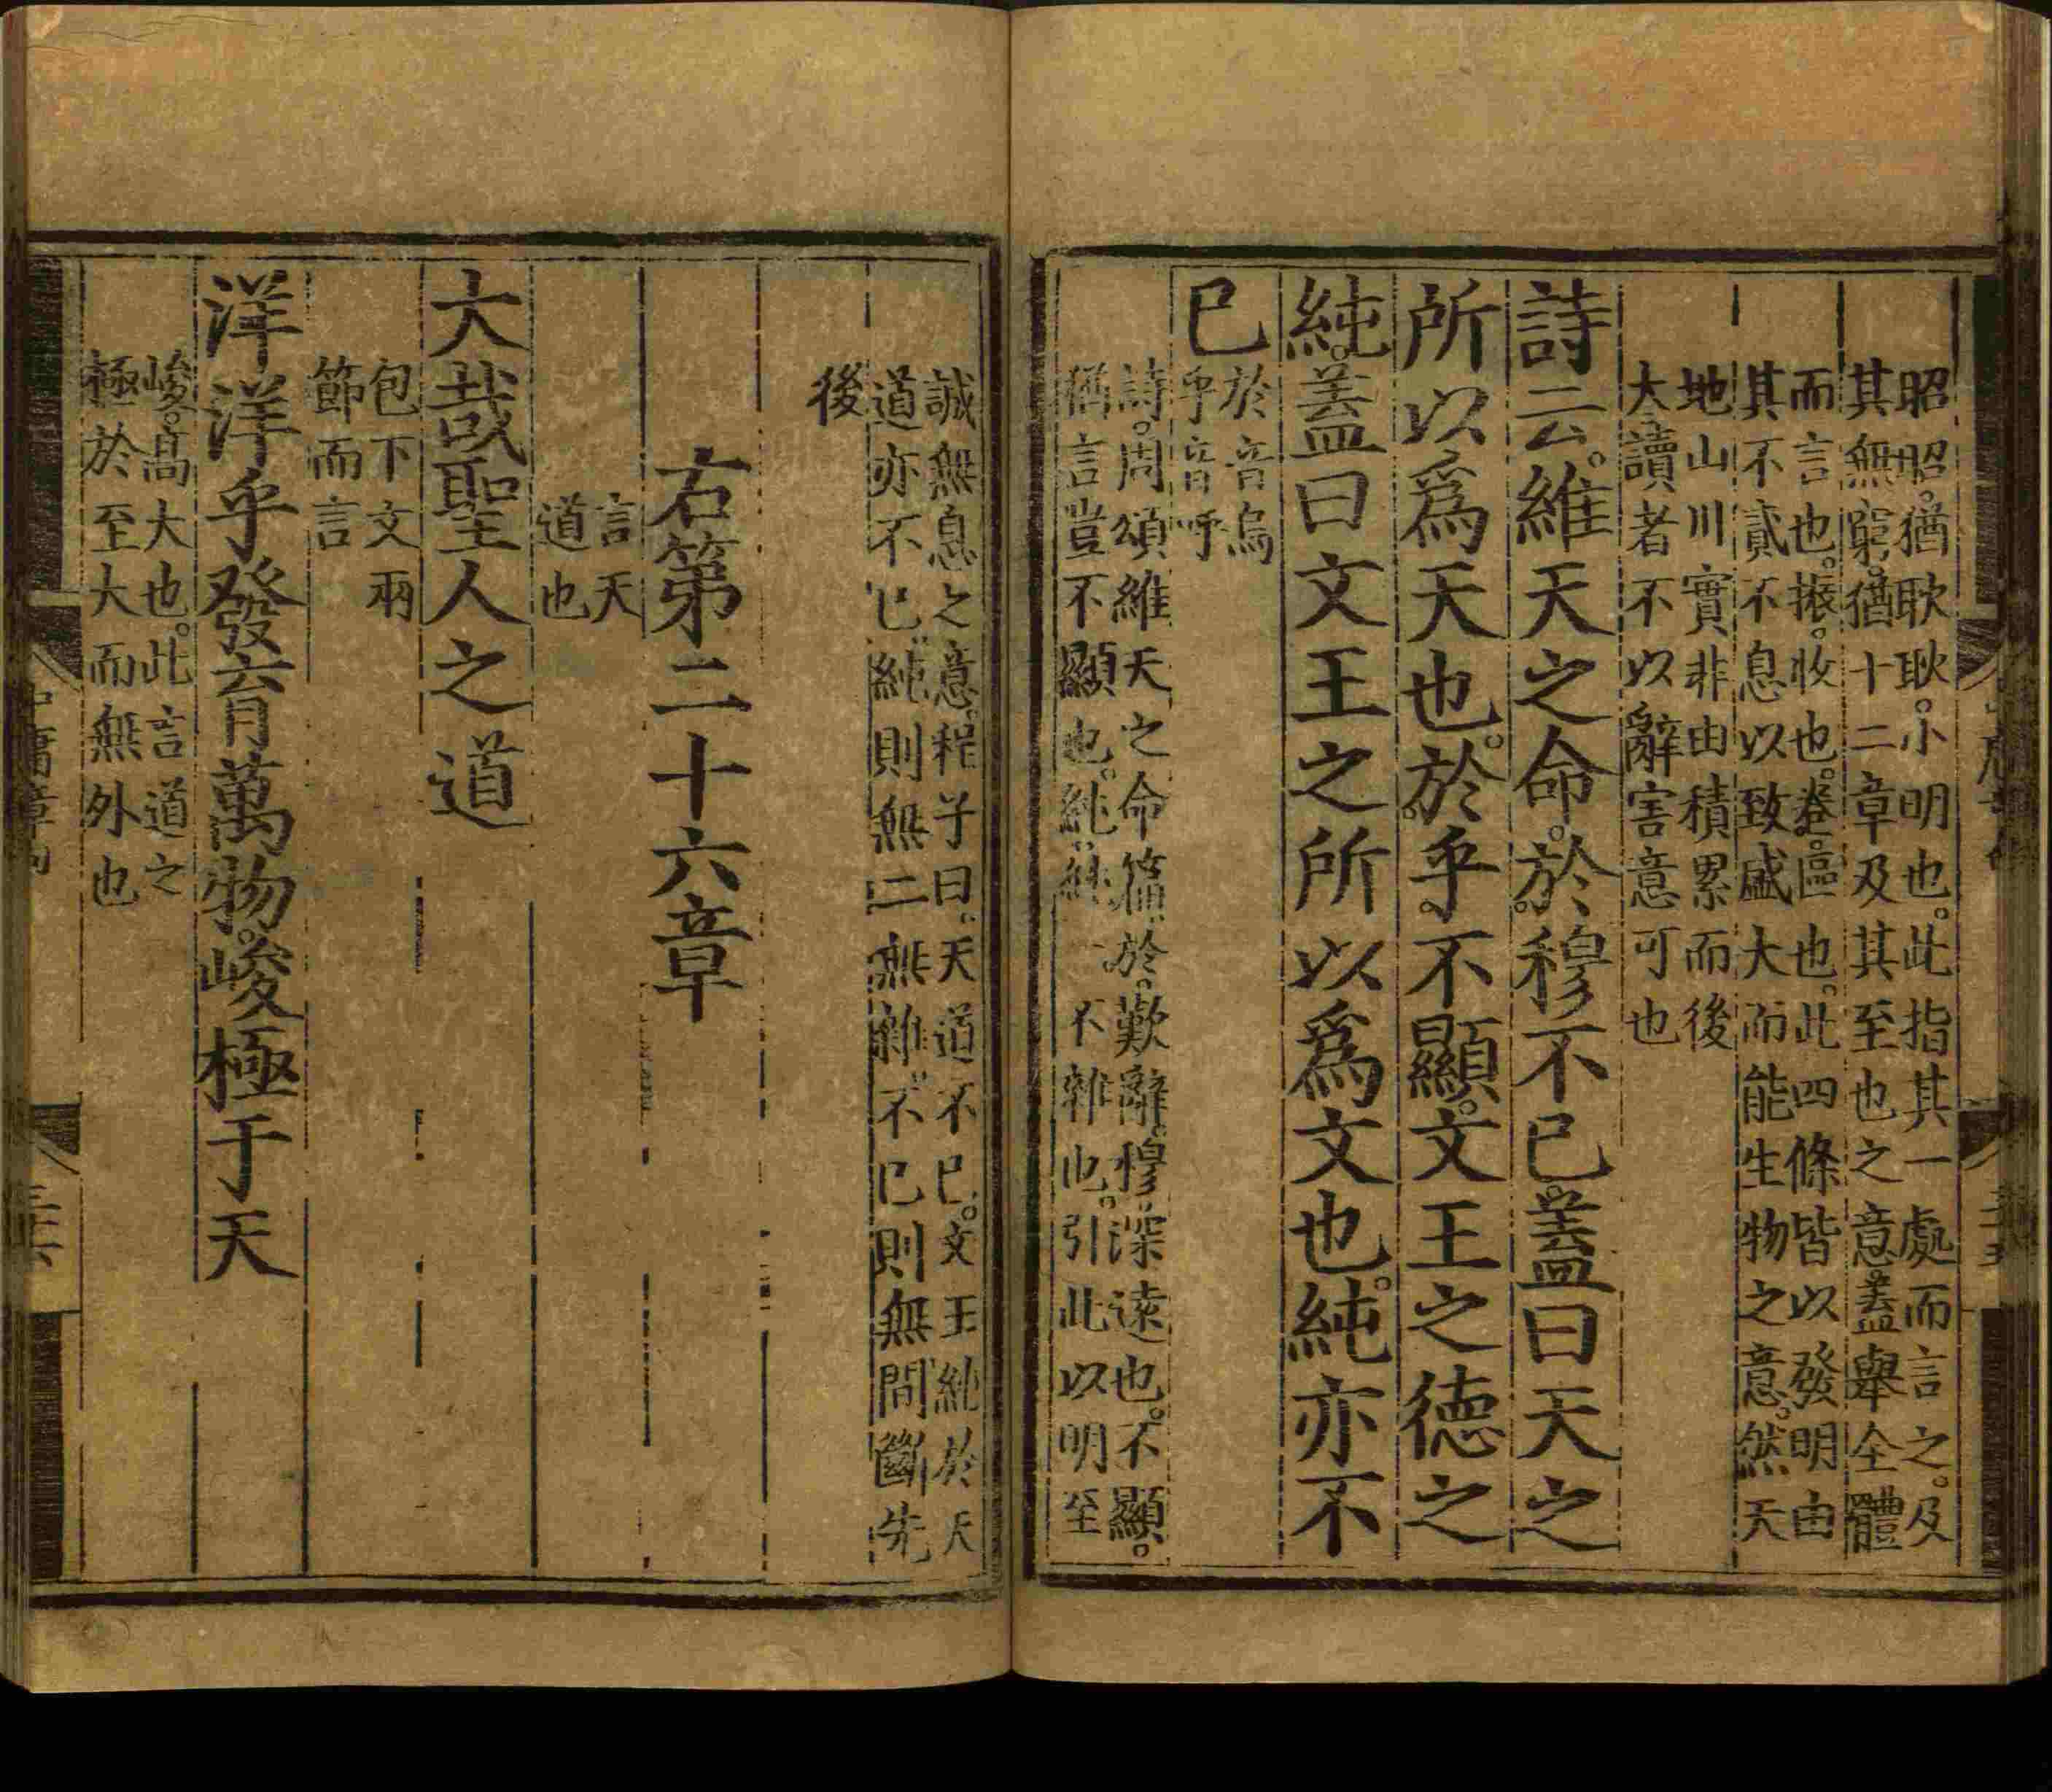 昭昭。猶耿耿。小明也。此指其一處而言之。及
其無窮。猶十二章及其至也之意。蓋舉全體
而言也。振。收也。卷。區也。此四條皆以發明由
其不貳不息以致盛大而能生物之意。然天
地山川實非由積累而後
大。讀者不以辭害意可也
詩云。維天之命。於穆不已。蓋曰天之
所以爲天也。於乎。不顯。文王之德之
純。蓋曰文王之所以爲文也。純亦不
已
於音烏
乎音呼
詩。周頌維天之命篇。於。歎辭。穆。深遠也。不顯。
猶言豈不顯也。純。純 不雜也。引此以明至
誠無息之意。程子曰。天道不已。文王純於天
道亦不已。純則無二無雜。不已則無間斷先
後
右第二十六章
言天
道也
大哉聖人之道
包下文兩
節而言
洋洋乎發育萬物。峻極于天
峻。高大也。此言道之
極於至大而無外也
中庸章句
二十六